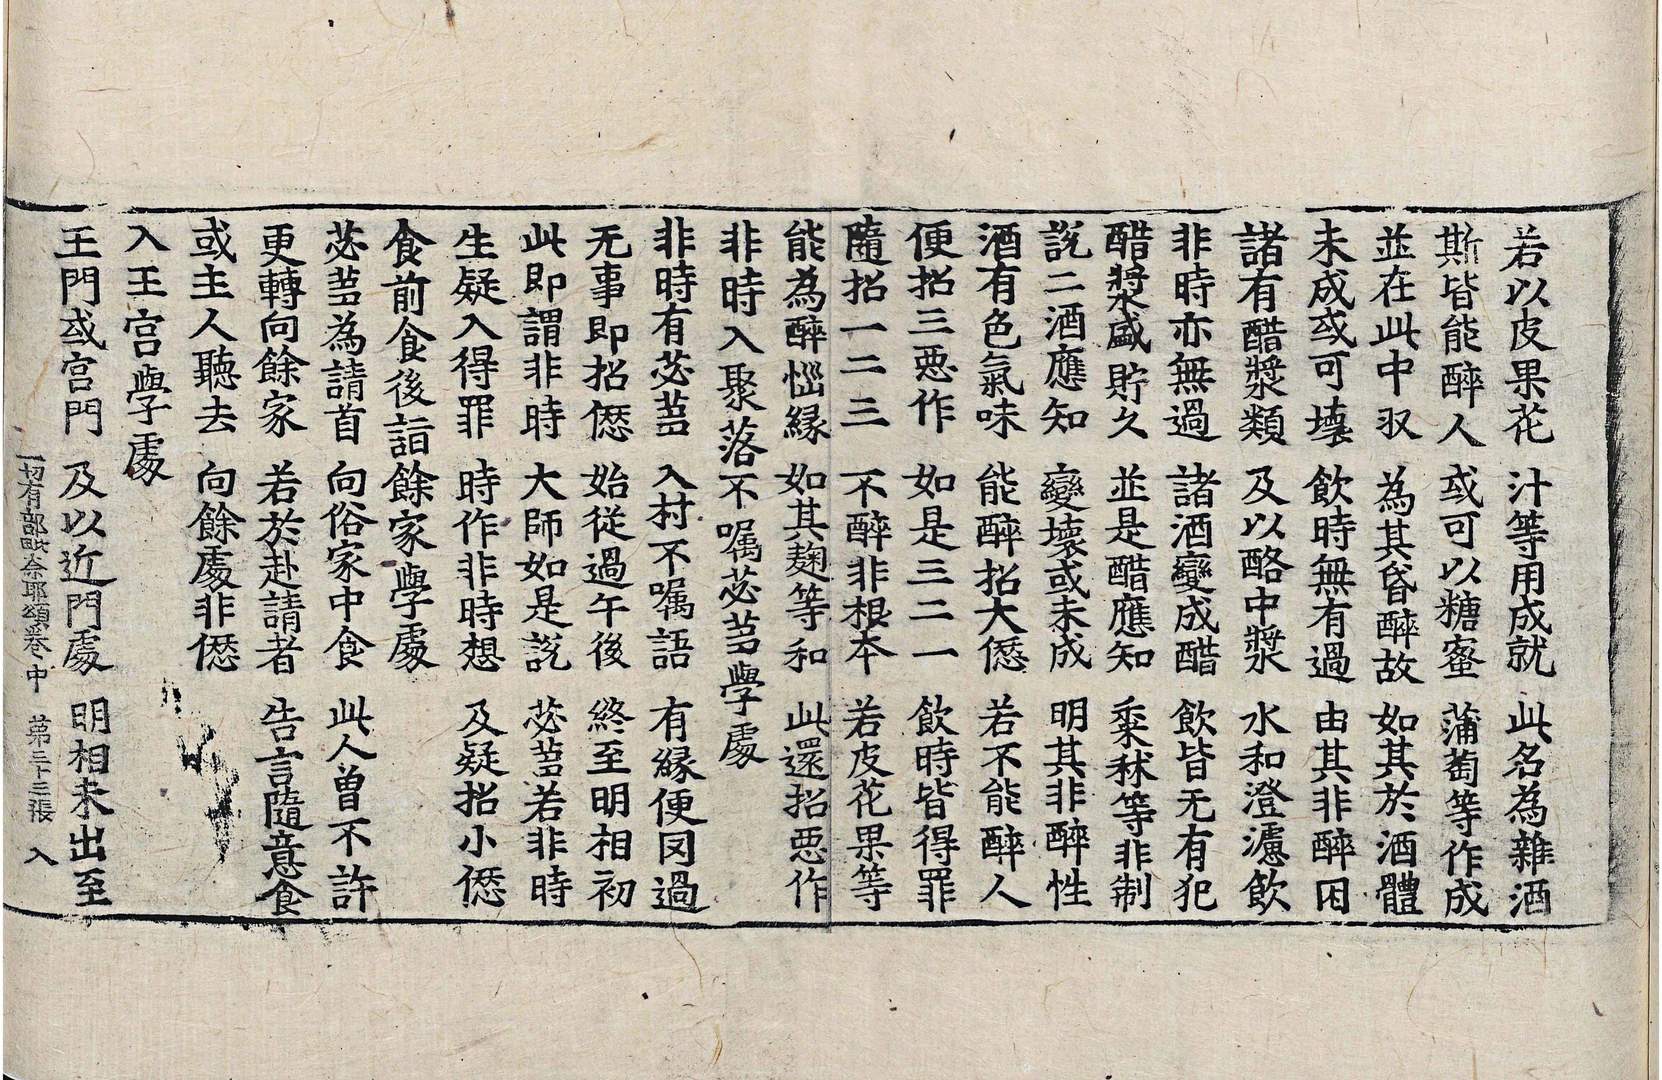 若以皮果花 汁等用成就 此名為雜酒
斯皆能醉人 或可以糖蜜 蒲萄等作成
並在此中収 為其昏醉故 如其於酒體
未成或可壞 飲時無有過 由其非醉因
諸有醋漿類 及以酪中漿 水和澄濾飲
非時亦無過 諸酒變成醋 飲皆无有犯
醋漿盛貯久 並是醋應知 粟秫等非制
說二酒應知 變壞或未成 明其非醉性
酒有色氣味 能醉招大愆 若不能醉人
便招三惡作 如是三二一 飲時皆得罪
隨招一二三 不醉非根本 若皮花果等
能為醉惱縁 如其麹等和 此還招惡作
非時入聚落不嘱苾蒭學處
非時有苾蒭 入村不嘱語 有縁便罔過
无事即招愆 始從過午後 終至明相初
此即謂非時 大師如是說 苾蒭若非時
生疑入得罪 時作非時想 及疑招小愆
食前食後詣餘家學處
苾蒭為請首 向俗家中食 此人曽不許
更轉向餘家 若於赴請者 告言隨意食
或主人聽去 向餘處非愆
入王宮學處
王門或宮門 及以近門處 明相未出至
一切有部毗奈耶頌卷中 第二十三張 入